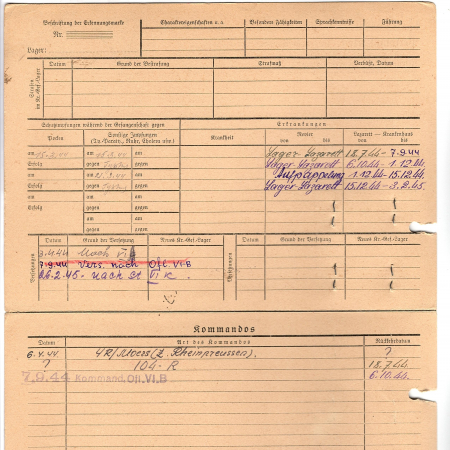 Beschriftung der Erkennungsmarke
Nr.
Lager:
Charaktereigenschaften u. a.
Besondere Fähigkeiten
Sprachkenntnisse
Führung
Strafen im Kr.-Gef.-Lager
Datum
Grund der Bestrafung
Strafmaß
Verbüßt, Datum
Schutzimpfungen während der Gefangenschaft gegen
Erkrankungen
Pocken
Sonstige Impfungen
(Ty-Paraty., Ruhr, Cholera usw.)
Krankheit
Revier
von bis
Lazarett — Krankenhaus
von bis
am
am
Lager Lazarett 18.7.44- 7.9.44
Erfolg
gegen
Lager Lazarett 6.10.44- 1.12.44.
am
am
1.12.44- 15.12.44.
Erfolg
gegen
Lager Lazarett 15.12.44- 3.2.45.
am
am
Erfolg
gegen
am
gegen
Versetzungen
Datum
Grund der Versetzung
Neues Kr.-Gef.-Lager
Datum
Grund der Versetzung
Neues Kr.-Gef.-Lager
Nach VI
7.9.44 Vers. nach Ofl. VI B
26.2.45- nach St VI K.
Kommandos
Datum
Art des Kommandos
Rückkehrdatum
6.4.44 4R/Moers (Z. Rheinpreussen). ?
? 104-R 18.7.44
7.9.44 Kommand. Ofl. VI. B 6.10.44